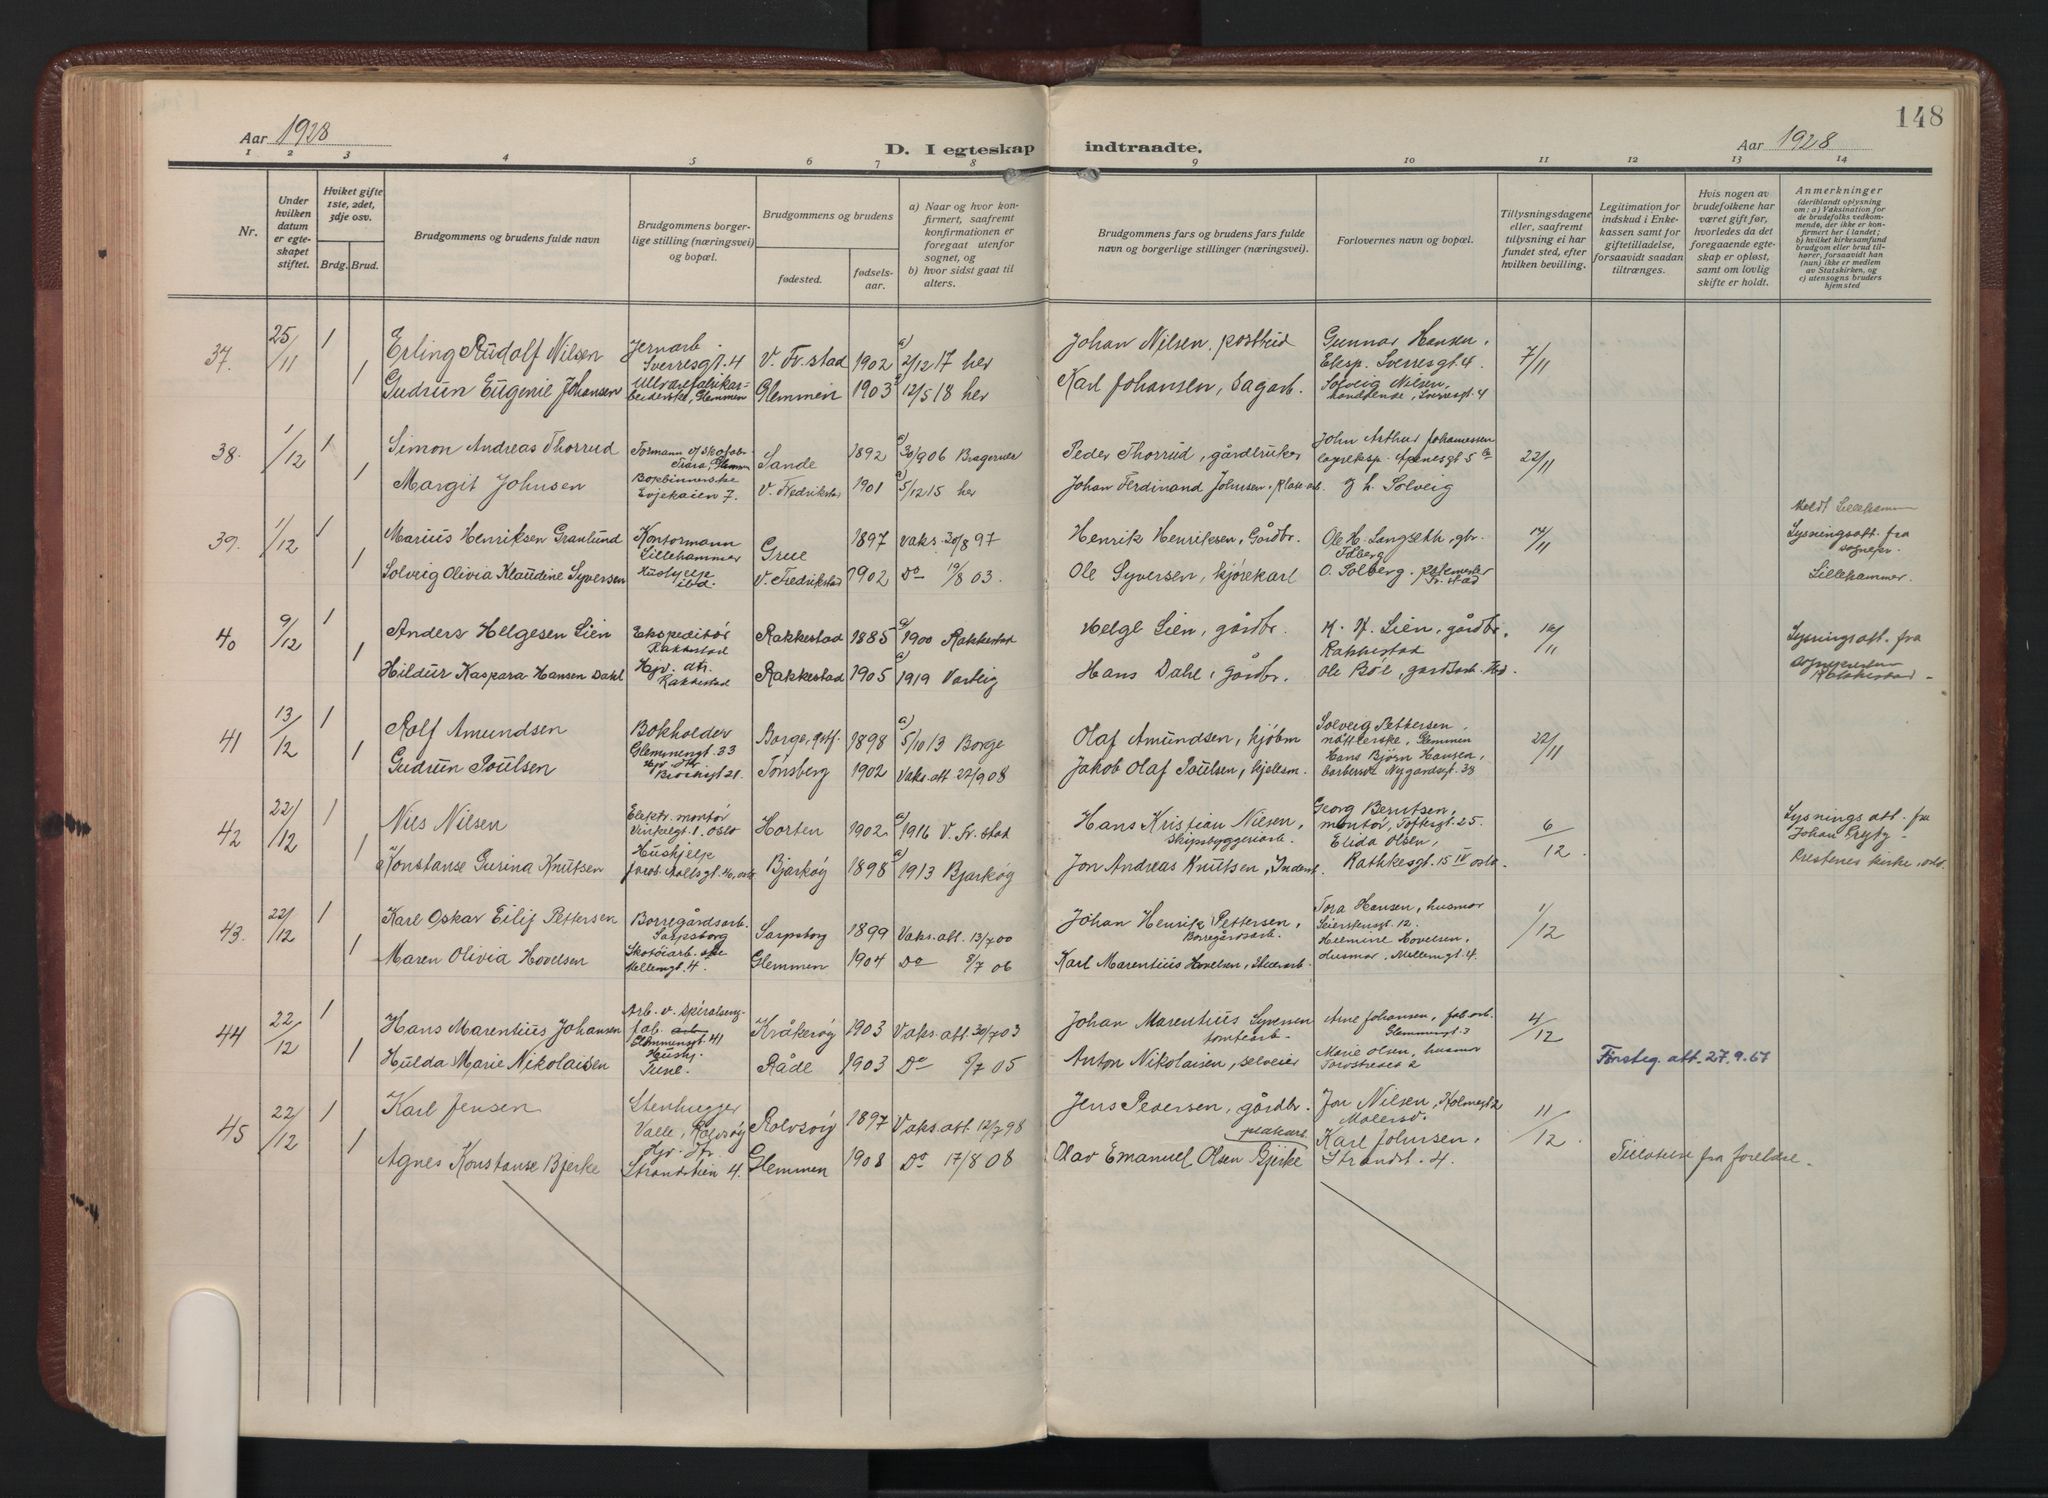 148
Aar 1928
D. I egteskap indtraadte.
Aar 1928
1 2 3 4 5 6 7 8 9 10 11 12 13 14
Nr.
Under hvilken datum er egteskapet stiftet.
Hviket gifte 1ste, 2det, 3dje osv.
Brdg. Brud.
Brudgommens og brudens fulde navn
Brudgommens borgerlige stilling (næringsvei) og bopæl.
Brudgommens og brudens
fødested.
fødselsaar.
a) Naar og hvor konfirmert, saafremt konfirmationen er foregaat utenfor sognet, og
b) hvor sidst gaat til alters.
Brudgommens fars og brudens fars fulde navn og borgerlige stillinger (næringsvei).
Forlovernes navn og bopæl.
Tillysningsdagene eller, saafremt tillysning ei har fundet sted, efter hvilken bevilling.
Legitimation for indskud i Enkekassen samt for giftetilladelse, forsaavidt saadan tiltrænges.
Hvis nogen av brudefolkene har været gift før, hvorledes da det foregaaende egteskap er opløst, samt om lovlig skifte er holdt.
Anmerkninger
(deriblandt oplysning om: a) Vaksination for de brudefolks vedkommende, der ikke er konfirmert her i landet; b) hvilket kirkesamfund brudgom eller brud tilhører, forsaavidt han (hun) ikke er medlem av Statskirken, og c) utensogns bruders hjemsted
37. 25/11 1 Erling Rudolf Nilsen Jernarb. Sverresgt. 4 V. Fr.stad 1902 a) 2/12 17 her Johan Nilsen, postbud Gunnar Hansen, Eksp. Sverresgt. 4. 7/11
1 Gudrun Eugenie Johansen Glemmen Glemmen 1903 12/5 18 her Karl Johansen, Sagarb. Solveig Nilsen, Sverresgt. 4
38. 1/12 1 Simon Andreas Thorrud Formann Trara, Glemmen Sande 1892 a) 30/9 06 Bragernes Peder Thorrud, gårdbruker John Arthur Johannessen lagereksp. 22/11
1 Margit Johnsen Bokbinnerske V. Fredrikstad 1901 5/12 15 her Johan Ferdinand Johnsen, Solveig
39. 1/12 1 Marius Henriksen Granlund Kontormann Lillehammer Grue 1897 Vaks. 20/8 97 Henrik Henriksen, Gårdbr. Ole H. Langseth, gbr. 14/11 Lysningsatt. fra sognepr. Lillehammer.
1 Solveig Olivia Klaudine Syversen Hushjelp ibd. V. Fredrikstad 1902 Do 19/8 03. Ole Syversen, kjørekarl O. Solberg, Fr.stad
40 9/12 1 Anders Helgesen Lien Ekspeditør Rakkestad Rakkestad 1885 a) 1900 Rakkestad Helge Lien, gårdbr. Lien, gårdbr. Rakkestad 16/11 Lysningsatt. fra Rakkestad
1 Hildur Kaspara Hansen Dahl Hjv. dtr. Rakkestad Rakkestad 1905 a) 1919 Varteig Hans Dahl, gårdbr. Ole Bøe, gårdbr.
41 13/12 1 Rolf Amundsen Bokholder Glemmengt. 33 Borge, Østf. 1898 a) 5/10 13 Borge Olaf Amundsen, kjøbm Solveig Pettersen, Glemmen 22/11
1 Gudrun Poulsen Hjv. dtr. Tønsberg 1902 Vaks. att. 22/9 08 Jakob Olaf Poulsen, Hans Bjørn Hansen, Nygårdsgt. 33
42 22/12 1 Nils Nilsen Elektr. montør Vinkelgt. 1. Oslo Horten 1902 a) 1916 V. Fr.stad Hans Kristian Nilsen, Skipsbyggeriarb. Georg Berntsen, montør, Toftesgt. 25. 6/12 Lysnings att. fra Johan
1 Konstanse Gurina Knutsen Hushjelp Jacob Aallsgt. Oslo Bjarkøy 1898 a) 1913 Bjarkøy Jon Andreas Knutsen, Elida Olsen, Rathkesgt. 15 IV Oslo kirke, Oslo
43. 22/12 1 Karl Oskar Eilif Pettersen Borregårdsarb. Sarpsborg Sarpsborg 1899 Vaks. att. 13/7 00 Johan Henrik Pettersen, Borregårdsarb. Tora Hansen, husmor 1/12
1 Maren Olivia Hovelsen Mellemgt. 4. Glemmen 1904 Do 8/7 06 Karl Marentius Hovelsen, Hermine Hovelsen, Husmor, Mellemgt. 4.
44 22/12 1 Hans Marentius Johansen Arb. v. fab. Glemmengt. 41 Kråkerøy 1903 Vaks. att. 30/7 03 Johan Marentius Syversen tomtearb. Arne Johansen, fab.arb. 4/12
1 Hulda Marie Nikolaisen Hushj. Tune. Råde 1903 Do 5/7 05 Anton Nikolaisen, selveier Marie Olsen, husmor Førsteg. att. 27.9.67
45 22/12 1 Karl Jensen Stenhugger Valle, Rolvsøy Rolvsøy 1897 Vaks. att. 12/7 98 Jens Pedersen, gårdbr. Jon Nilsen, 11/12
1 Agnes Konstanse Bjerke Hjv. dtr. Glemmen 1908 Do 17/8 08 Olav Emanuel Olsen Bjerke Karl Johnsen, Strandst. 4. Tillatelse fra foreldre.